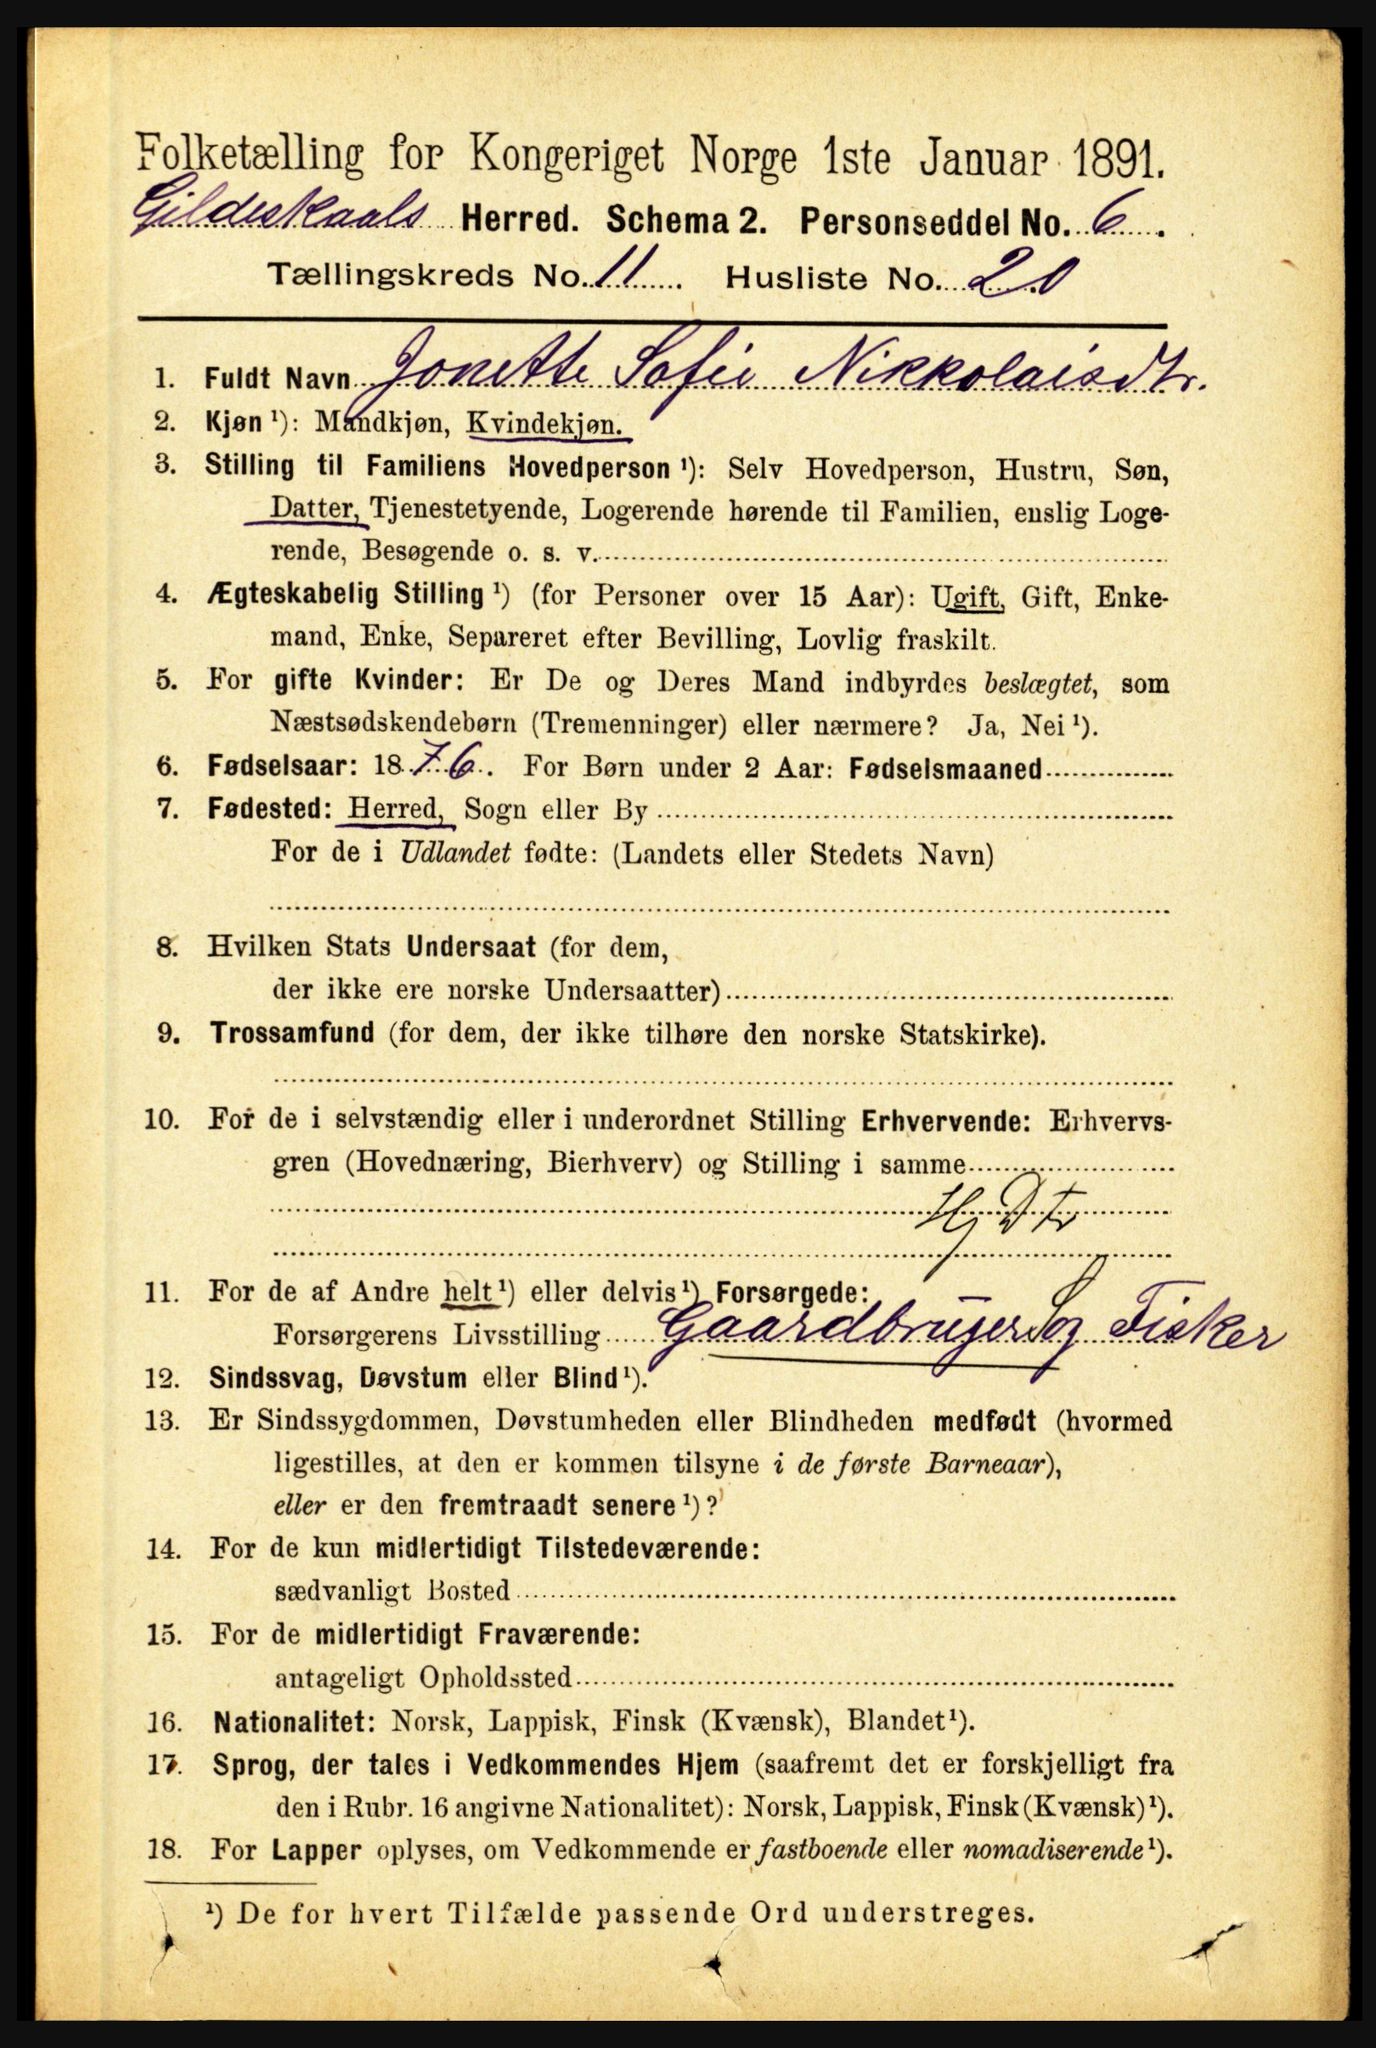 Folketælling for Kongeriget Norge 1ste Januar 1891.
Gildeskaals Herred. Schema 2. Personseddel No. 6.
Tællingskreds No. 11. Husliste No. 20
1. Fuldt Navn Jonette Sofie Nikkolaisdtr.
2. Kjøn ¹): Mandkjøn, Kvindekjøn.
3. Stilling til Familiens Hovedperson ¹): Selv Hovedperson, Hustru, Søn,
Datter, Tjenestetyende, Logerende hørende til Familien, enslig Loge-
rende, Besøgende o. s. v.
4. Ægteskabelig Stilling ¹) (for Personer over 15 Aar): Ugift, Gift, Enke-
mand, Enke, Separeret efter Bevilling, Lovlig fraskilt.
5. For gifte Kvinder: Er De og Deres Mand indbyrdes beslægtet, som
Næstsødskendebørn (Tremenninger) eller nærmere? Ja, Nei ¹).
6. Fødselsaar: 1876. For Børn under 2 Aar: Fødselsmaaned
7. Fødested: Herred, Sogn eller By
For de i Udlandet fødte: (Landets eller Stedets Navn)
8. Hvilken Stats Undersaat (for dem,
der ikke ere norske Undersaatter)
9. Trossamfund (for dem, der ikke tilhøre den norske Statskirke).
10. For de i selvstændig eller i underordnet Stilling Erhvervende: Erhvervs-
gren (Hovednæring, Bierhverv) og Stilling i samme
Hj Dtr
11. For de af Andre helt ¹) eller delvis ¹) Forsørgede:
Forsørgerens Livsstilling Gaardbruger S og Fisker
12. Sindssvag, Døvstum eller Blind ¹).
13. Er Sindssygdommen, Døvstumheden eller Blindheden medfødt (hvormed
ligestilles, at den er kommen tilsyne i de første Barneaar),
eller er den fremtraadt senere ¹)?
14. For de kun midlertidigt Tilstedeværende:
sædvanligt Bosted
15. For de midlertidigt Fraværende:
antageligt Opholdssted
16. Nationalitet: Norsk, Lappisk, Finsk (Kvænsk), Blandet ¹).
17. Sprog, der tales i Vedkommendes Hjem (saafremt det er forskjelligt fra
den i Rubr. 16 angivne Nationalitet): Norsk, Lappisk, Finsk (Kvænsk) ¹).
18. For Lapper oplyses, om Vedkommende er fastboende eller nomadiserende ¹).
¹) De for hvert Tilfælde passende Ord understreges.